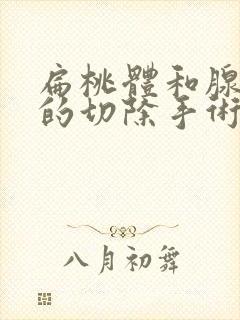 扁桃體和腺
的切除手術
八月初舞